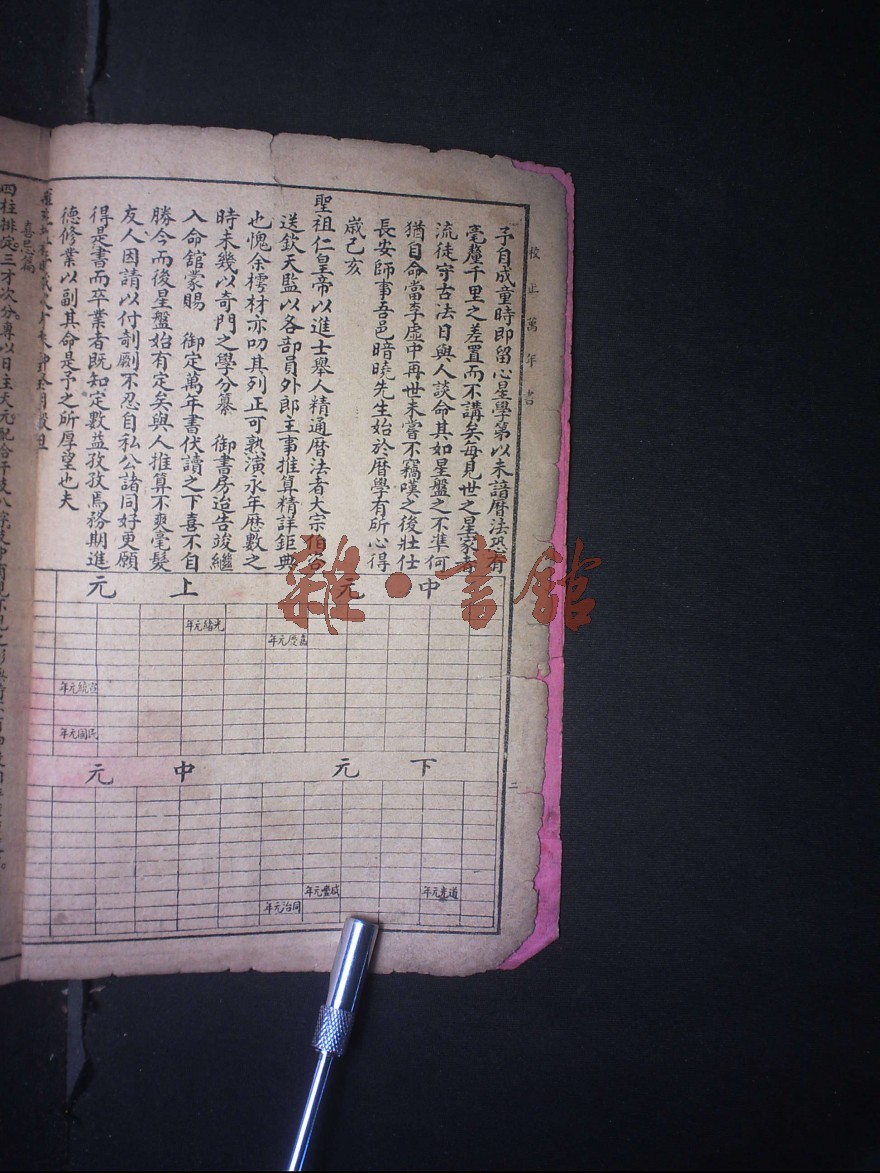 校正萬年書
予自成童時即留心星學第以未諳曆法恐有
毫釐千里之差置而不講矣每見世之星家者
流徒守古法日與人談命其如星盤之不準何
猶自命當李虛中再世未嘗不竊嘆之後壯仕
長安師事吾邑暗曉先生始於曆學有所心得
歲己亥
聖祖仁皇帝以進士舉人精通曆法者大宗伯咨
送欽天監以各部員外郎主事推算精詳鉅典
也愧余樗材亦叨其列正可熟演永年歷數之
時未幾以奇門之學分纂 御書房迨告竣繼
入命舘蒙賜 御定萬年書伏讀之下喜不自
勝今而後星盤始有定矣與人推算不爽毫髮
友人因請以付剞劂不忍自私公諸同好更願
得是書而卒業者既知定數益孜孜焉務期進
德修業以副其命是予之所厚望也夫
中元
上元
嘉慶元年
光緒元年
宣統元年
民國元年
下元
中元
道光元年
咸豐元年
同治元年
二
喜忌篇
四柱排定三才次分專以日主天元配合干支八字
雜·書館